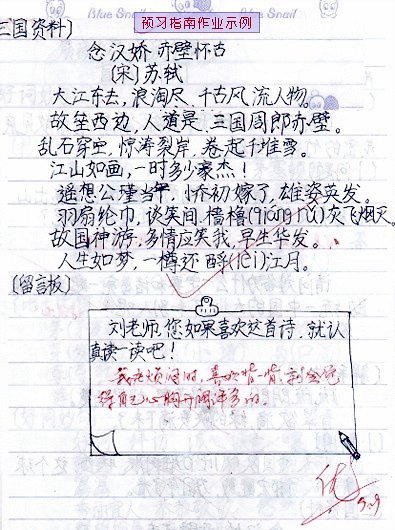 Blue Snail 预习指南作业示例 Blue Snail
三国资料〕
念汉娇 赤壁怀古
〔宋〕苏轼
大江东去，浪淘尽、千古风流人物。
故垒西边，人道是、三国周郎赤壁。
乱石穿空，惊涛裂岸，卷起千堆雪。
江山如画，一时多少豪杰！
遥想公瑾当年，小乔初嫁了，雄姿英发。
羽扇纶巾，谈笑间，樯橹(qiáng rǔ)灰飞烟灭。
故国神游，多情应笑我，早生华发。
人生如梦，一樽还酹(lèi)江月。
〔留言板〕
刘老师，您如果喜欢这首诗，就认
真读一读吧！
我在烦闷时，喜欢背一背，就会觉
得自己心胸开阔许多的。
优